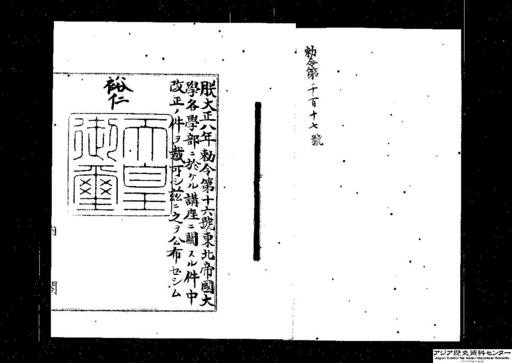 勅令第二百十七號
朕大正八年勅令第十六號東北帝國大
學各學部ニ於ケル講座ニ關スル件中
改正ノ件ヲ裁可シ茲ニ之ヲ公布セシム
裕仁
天皇
御璽
内閣
アジア歴史資料センター
Japan Center for Asian Historical Records